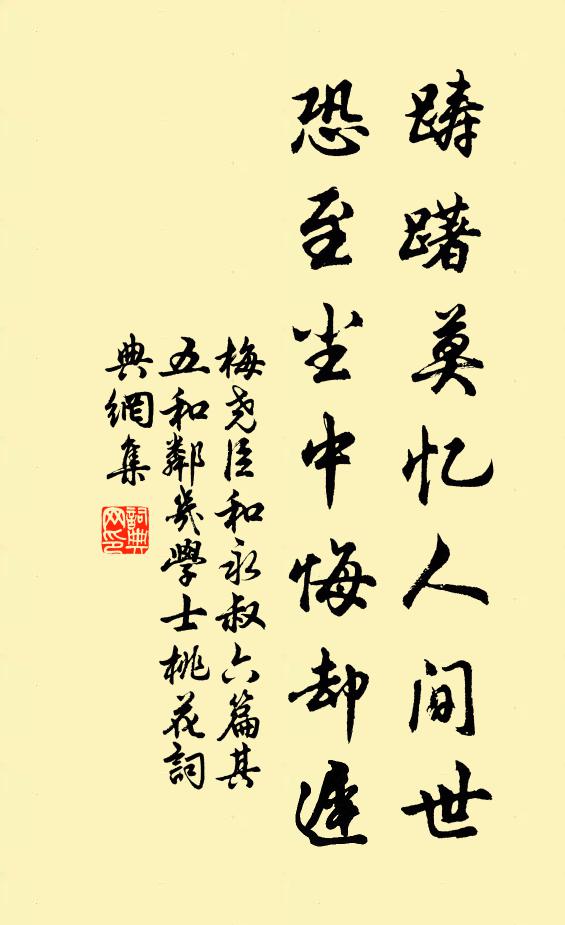 踌躇莫忆人间世
恐至尘中悔却遲
梅尧臣和永叔六篇其
五和鄰幾學士桃花詞
典網集
詞典
网印